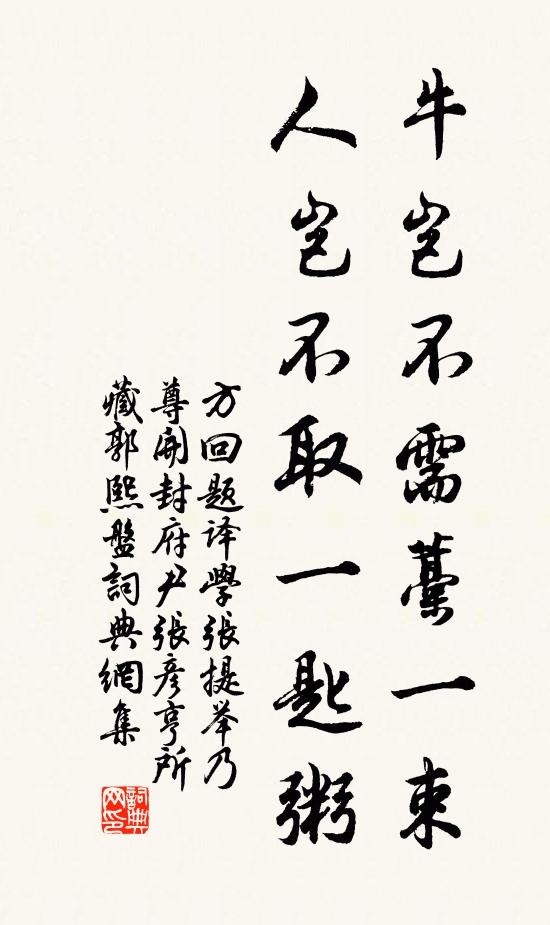 牛岂不需藁一束
人岂不取一匙粥
方回题译學張提举乃
尊開封府尹張彦亨所
藏郭熙盤詞典網集
詞典
网印